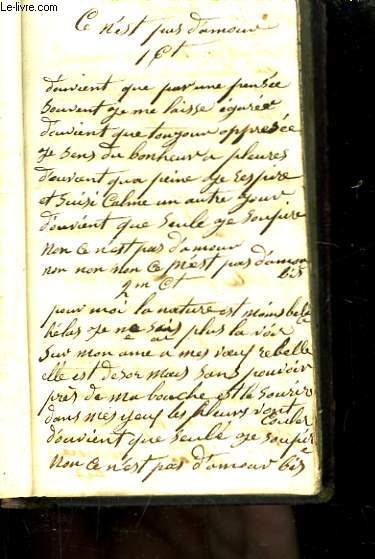 Le-livre.com
Ce n'est pas d'amour
1 Ct
d'ouvient que par une pensée
souvent je me laisse égarée
d'ouvient que toujour oppresée
je sens du bonheur a pleures
d'ouvient qua peine je respire
et suisi calme un autre jour
d'ouvient que seule je soupire
non ce n'est pas d'amour
non non non ce n'est pas d'amour
bis
2m Ct
pour moi la nature est moins belle
hélas je ne sais plus la voir
sur mon ame a mes vœux rebelle
elle est desor mais sans pouvoir
près de ma bouche est le sourire
dans mes yeux les pleurs vont
couler
d'ouvient que seule je soupire
non ce n'est pas d'amour bis